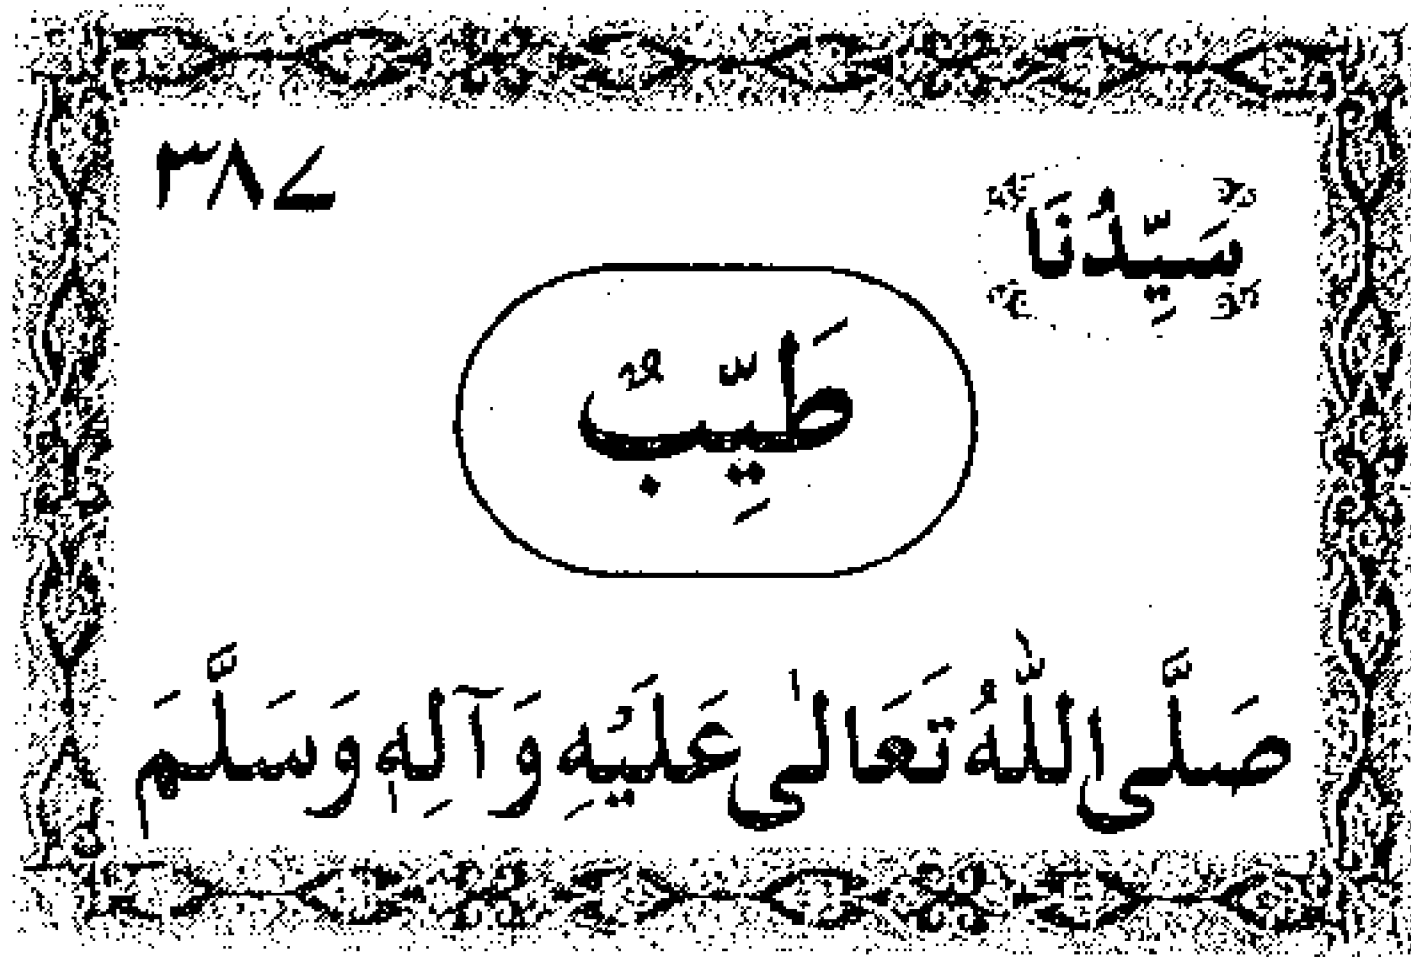 ۳۸۷
سَيِّدُنَا
طَيِّبٌ
صَلَّى اللّٰهُ تَعَالىٰ عَلَيْهِ وَآلِهٖ وَسَلَّمَ